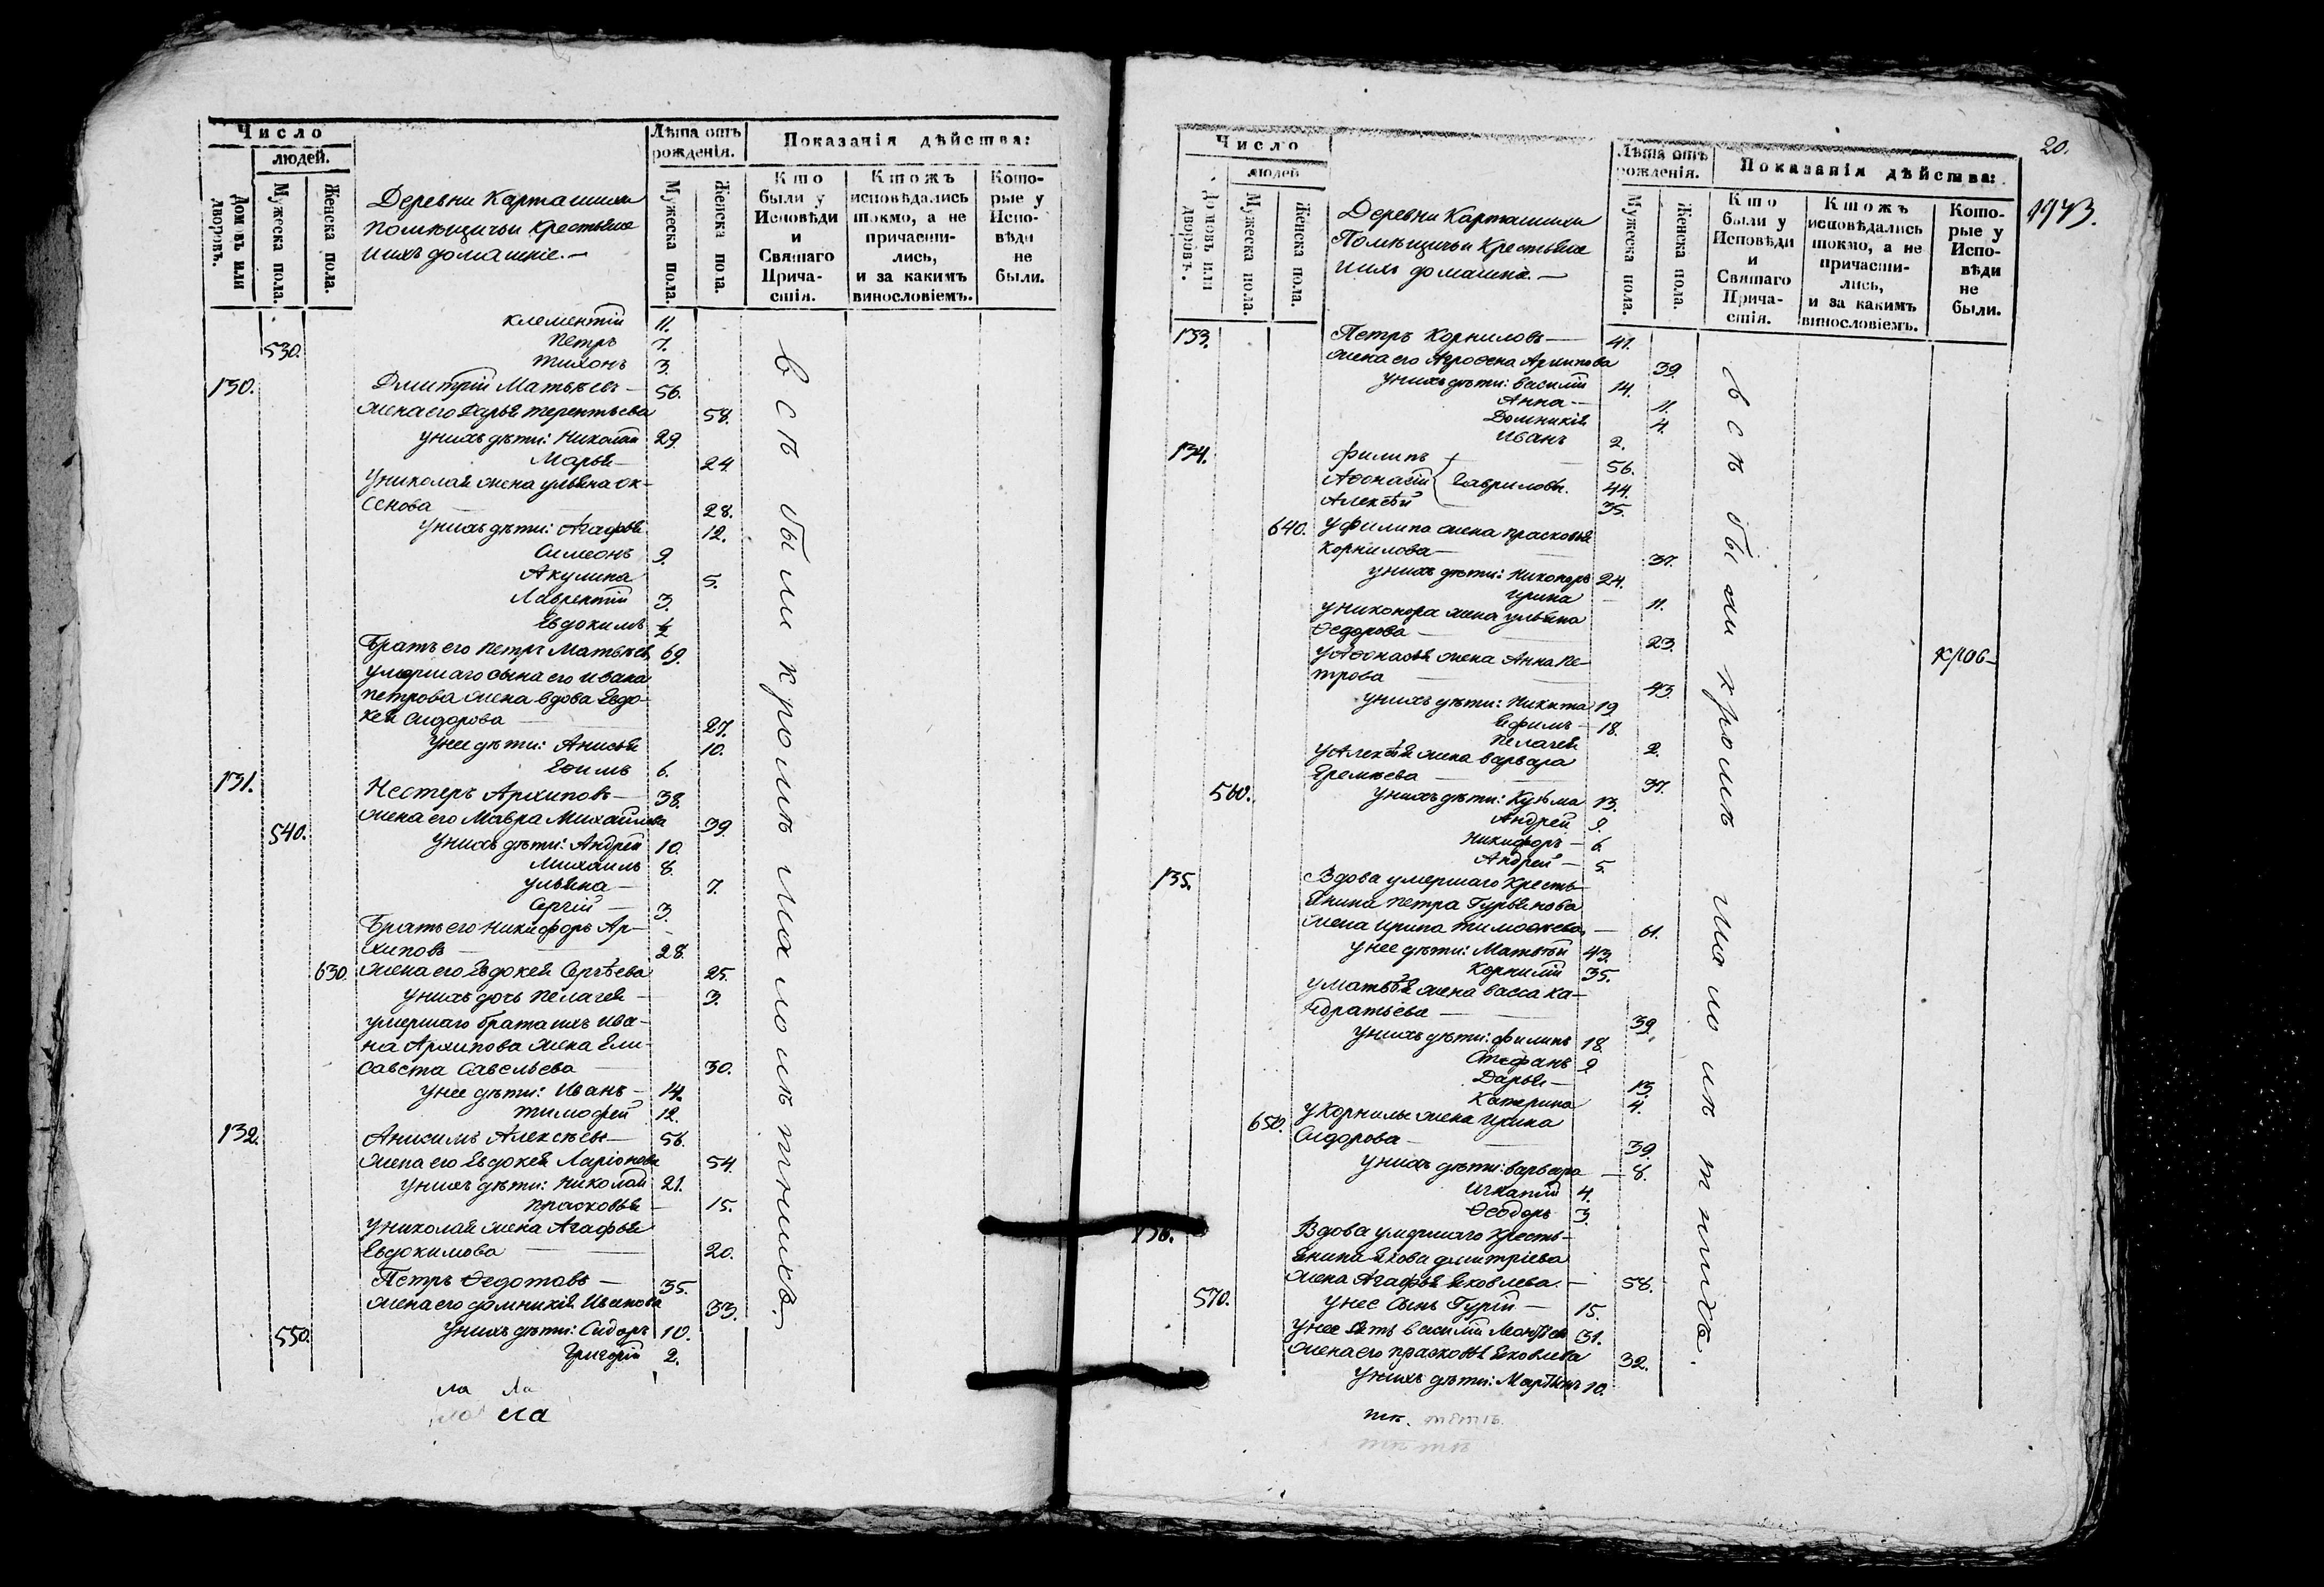 Число
людей.
Домовъ или дворовъ.
Мужеска пола.
Женска пола.
Деревни Карташихи
помѣщичьи крестьяне
и ихъ домашніе.—
Лѣта отъ рожденія.
Мужеска пола.
Женска пола.
Показанія дѣйства:
Кто были у Исповѣди и Святаго Причастія.
Ктожъ исповѣдались токмо, а не причастились, и за какимъ винословіемъ.
Которые у Исповѣди не были.
Клементій 11.
530. Петръ 7.
Тихонъ 3.
130. Дмитрій Матвѣевъ — 56.
жена его Дарья Терентьева 58.
у нихъ дѣти: Николай 29.
Марья — 24
у Николая жена Ульяна Ок-
сенова — 28.
у нихъ дѣти: Агафья 12.
Симеонъ 9.
Акулина 5.
Лаврентій 3.
Евдокимъ ½
Братъ его Петръ Матвѣевъ 69.
умершаго сына его Ивана
Петрова жена вдова Евдо-
кея Сидорова — 27.
у нее дѣти: Анисья 10.
Ефимъ 6.
131. Нестеръ Архиповъ — 38.
жена его Мавра Михайлова 39.
540. у нихъ дѣти: Андрей 10.
Михаилъ 8.
Ульяна — 7.
Сергій — 3.
Братъ его Никифоръ Ар-
хиповъ — 28.
630. жена его Евдокея Сергѣева 25.
у нихъ дочь Пелагея — 3.
умершаго брата ихъ Ива-
на Архипова жена Ели-
савета Савельева — 30.
у нее дѣти: Иванъ — 14.
Тимофей 12.
132. Анисимъ Алексѣевъ — 56.
жена его Евдокея Ларіонова 54.
у нихъ дѣти: Николай 21.
Прасковья — 15.
у Николая жена Агафья
Евдокимова — 20.
Петръ Ѳедотовъ — 35.
жена его Домникія Иванова 33.
550. у нихъ дѣти: Сидоръ 10.
Григорій 2.
всѣ были кромѣ малолѣтнихъ.
ла ла
ла ла
20.
1973.
Число
людей
Домовъ или дворовъ.
Мужеска пола.
Женска пола.
Деревни Карташихи
Помѣщичьи крестьяне
и ихъ домашніе. —
Лѣта отъ рожденія.
Мужеска пола.
Женска пола.
Показанія дѣйства:
Кто были у Исповѣди и Святаго Причастія.
Ктожъ исповѣдались токмо, а не причастились, и за какимъ винословіемъ.
Которые у Исповѣди не были.
133. Петръ Корниловъ — 41.
жена его Агрофена Архипова 39.
у нихъ дѣти: Василій 14.
Анна — 11.
Домникія 4.
Иванъ 2.
134. Филипъ 56.
Аѳонасій Гавриловы. 44.
Алексѣй 35.
640. у Филипа жена Прасковья
Корнилова — 37.
у нихъ дѣти: Никоноръ 24.
Ирина 11.
у Никонора жена Ульяна
Ѳедорова — 23.
у Аѳонасья жена Анна Пе-
трова — 43.
у нихъ дѣти: Никита 19.
Ефимъ — 18.
Пелагея 2.
у Алексѣя жена Варвара
Еремѣева — 37.
560. у нихъ дѣти: Кузьма 13.
Андрей 9.
Никифоръ — 6.
Андрей — 5.
135. Вдова умершаго кресть-
янина Петра Гурьянова
жена Ирина Тимоѳеева — 61.
у нее дѣти: Матвѣй 43.
Корнилій 35.
у Матвѣя жена Васса Ка-
ндратьева — 39.
у нихъ дѣти: Филипъ 18.
Стефанъ 9
Дарья — 13.
Катерина 4.
у Корнилы жена Ирина
650. Сидорова — 39.
у нихъ дѣти: Варвара — 8.
Игнатій 4.
Ѳеодоръ 3.
136. Вдова умершаго кресть-
янина Якова Дмитріева
жена Агафья Яковлева. — 58.
570. у нее сынъ Гурій — 15.
у нее зять Василій 31.
жена его Прасковья Яковлева 32.
у нихъ дѣти: Мартынъ 10.
всѣ были кромѣ малолѣтнихъ.
тѣ.
тѣ тѣ